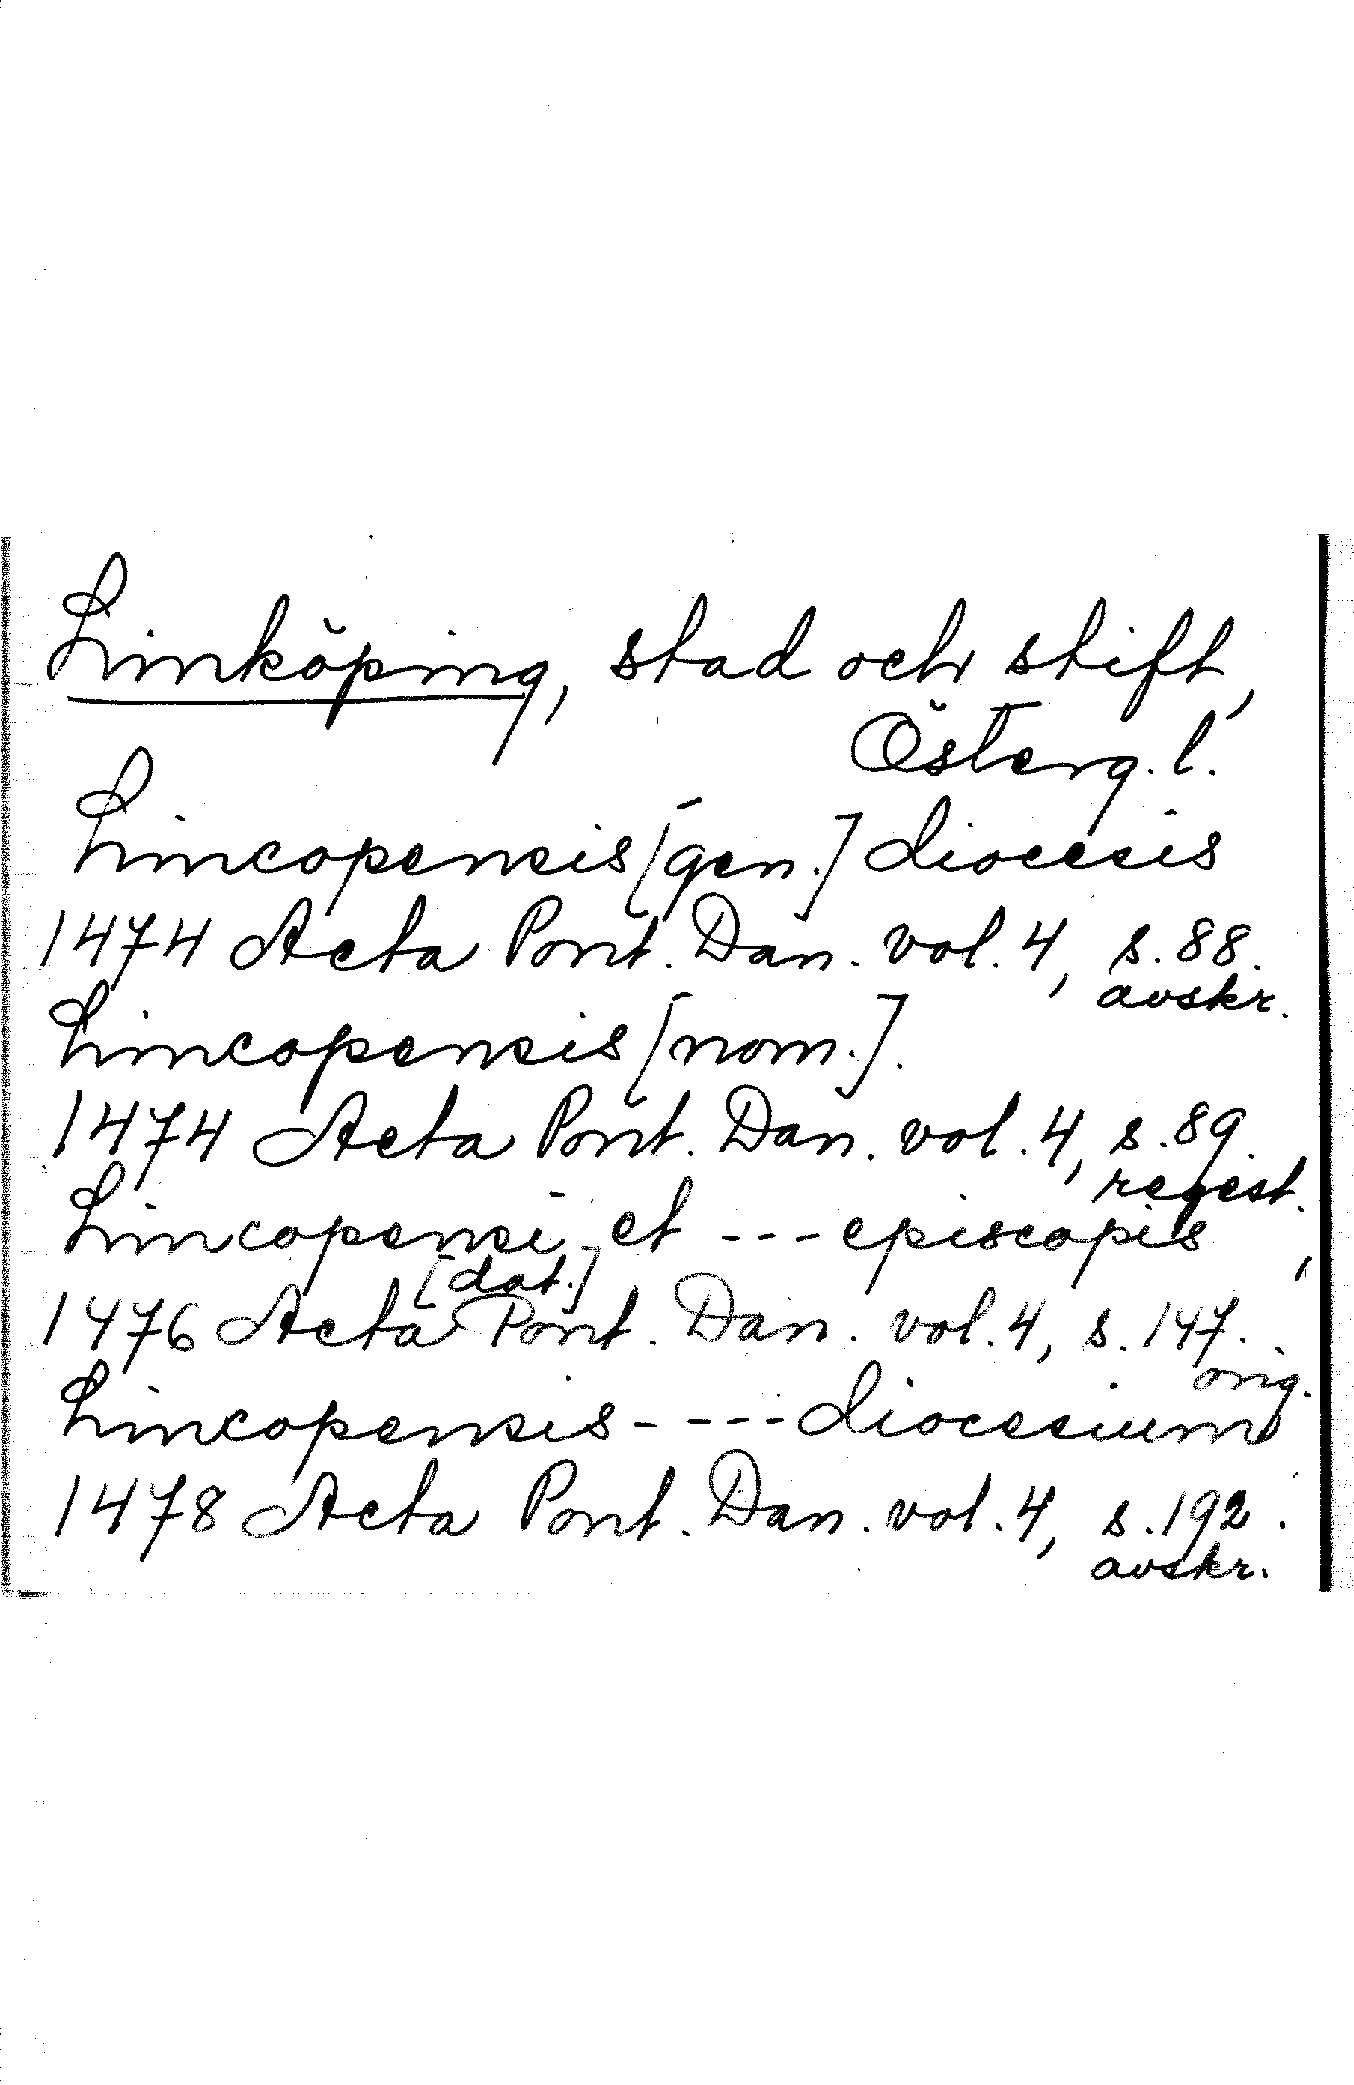 Linköping, stad och stift,
Österg. l.
Lincopensis [gen.] diocesis
1474 Acta Pont. Dan. vol. 4, s. 88.
avskr.
Lincopensis [nom.].
1474 Acta Pont. Dan. vol. 4, s. 89.
regest.
Lincopensi et --- episcopis,
[dat.]
1476 Acta Pont. Dan. vol. 4, s. 147.
orig.
Lincopensis - --- diocesium
1478 Acta Pont. Dan. vol. 4, s. 192.
avskr.